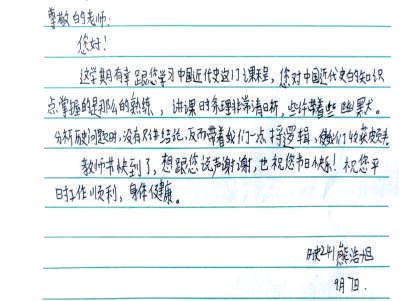 尊敬的老师:
您好!
这学期有幸跟您学习中国近代史这门课程,您对中国近代史的知识
点掌握的是那么的熟练,讲课时条理非常清晰,些许带着些幽默。
分析历史问题时,没有只讲结论,反而带着我们一点捋逻辑,使我们收获
教师节快到了,想跟您说声谢谢,也祝您节日快乐!祝您平
时工作顺利,身体健康。
历史241熊浩旭
9月7日.